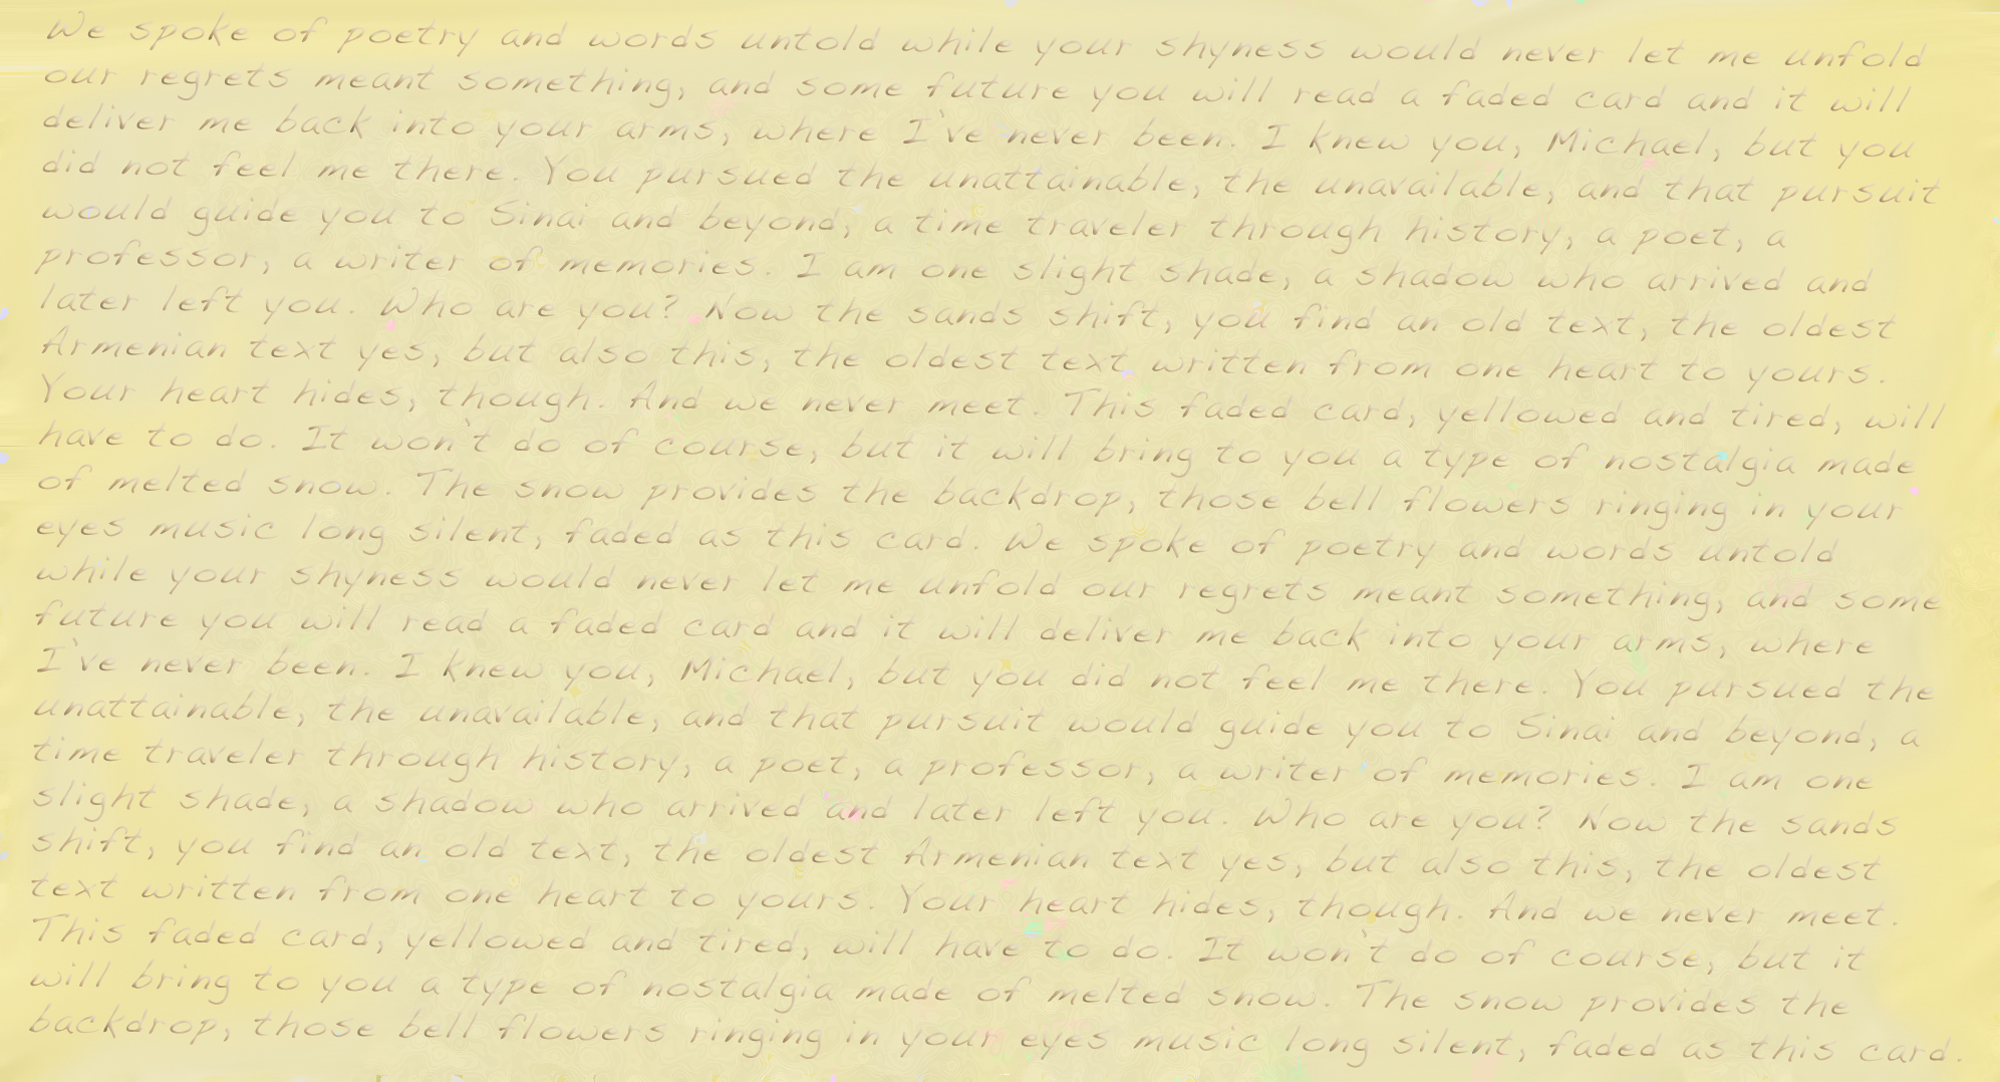 We spoke of poetry and words untold while your shyness would never let me unfold
our regrets meant something, and some future you will read a faded card and it will
deliver me back into your arms, where I've never been. I knew you, Michael, but you
did not feel me there. You pursued the unattainable, the unavailable, and that pursuit
would guide you to Sinai and beyond, a time traveler through history, a poet, a
professor, a writer of memories. I am one slight shade, a shadow who arrived and
later left you. Who are you? Now the sands shift, you find an old text, the oldest
Armenian text yes, but also this, the oldest text written from one heart to yours.
Your heart hides, though. And we never meet. This faded card, yellowed and tired, will
have to do. It won't do of course, but it will bring to you a type of nostalgia made
of melted snow. The snow provides the backdrop, those bell flowers ringing in your
eyes music long silent, faded as this card. We spoke of poetry and words untold
while your shyness would never let me unfold our regrets meant something, and some
future you will read a faded card and it will deliver me back into your arms, where
I've never been. I knew you, Michael, but you did not feel me there. You pursued the
unattainable, the unavailable, and that pursuit would guide you to Sinai and beyond, a
time traveler through history, a poet, a professor, a writer of memories. I am one
slight shade, a shadow who arrived and later left you. Who are you? Now the sands
shift, you find an old text, the oldest Armenian text yes, but also this, the oldest
text written from one heart to yours. Your heart hides, though. And we never meet.
This faded card, yellowed and tired, will have to do. It won't do of course, but it
will bring to you a type of nostalgia made of melted snow. The snow provides the
backdrop, those bell flowers ringing in your eyes music long silent, faded as this card.